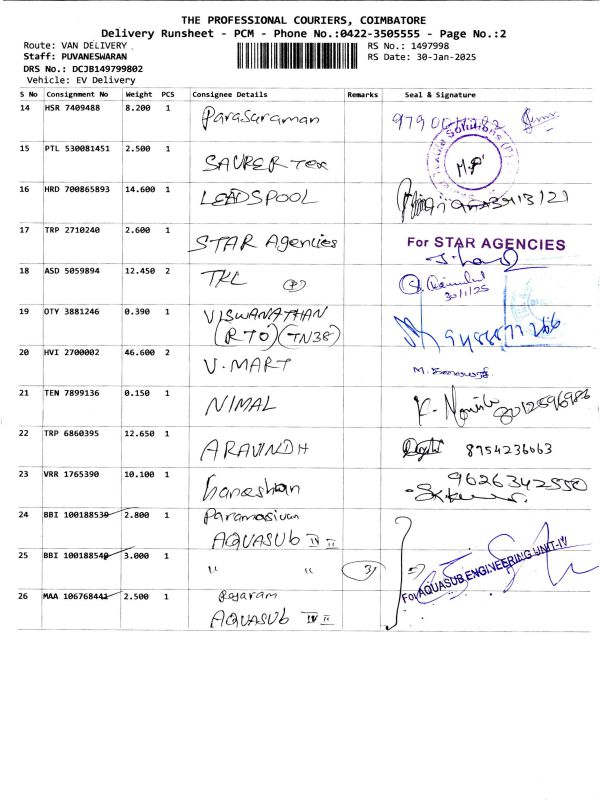 THE PROFESSIONAL COURIERS, COIMBATORE
Delivery Runsheet - PCM - Phone No.:0422-3505555 - Page No.:2
Route: VAN DELIVERY
RS No.: 1497998
Staff: PUVANESWARAN
RS Date: 30-Jan-2025
DRS No.: DCJB149799802
Vehicle: EV Delivery
S No Consignment No Weight PCS Consignee Details Remarks Seal & Signature
14 HSR 7409488 8.200 1 Parasaraman
15 PTL 530081451 2.500 1 SAURER Tex
Solutions (P)
M.P
16 HRD 700865893 14.600 1 LEADSPOOL
17 TRP 2710240 2.600 1 STAR Agencies For STAR AGENCIES
18 ASD 5059894 12.450 2 TKL (P)
30/1/25
19 OTY 3881246 0.390 1 VISWANATHAN
(RTO) (TN38)
20 HVI 2700002 46.600 2 V-MART
21 TEN 7899136 0.150 1 NIMAL
22 TRP 6860395 12.650 1 ARAVINDH 8954236063
23 VRR 1765390 10.100 1 Ganeshan 9626342550
24 BBI 100188539 2.800 1 Paramasivan
AQUASUB IV II
25 BBI 100188540 3.000 1 " " 3
For AQUASUB ENGINEERING UNIT-IV
26 MAA 106768441 2.500 1 Rajaram
AQUASUb IV II